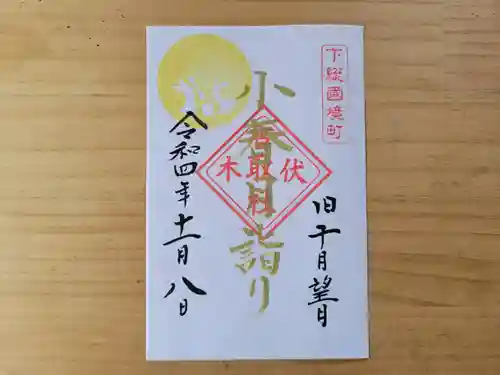 下総國境町
旧十月望日
小春月詣り
伏木
香取社
令和四年十一月八日